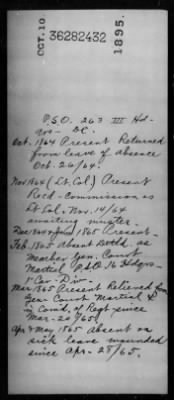 CGT. 10. 36282432 1895.
P.S.O. 263 III Hd-
qrs- DC.
Oct. 1864 Present Returned
from leave of absence
Oct. 26/64.
Nov. 1864 (Lt. Col.) Present
Recd. Commission as
Lt Col. Nov. 14/64
awaiting muster.
Dec 1864 & Jan 1865 Present-
Feb. 1865 Absent Detld. as
Member Gen. Court
Martial P.S.O. 16 Hdqrs-
1st Cav. Div-
Mar. 1865 Present Relieved from
Gen Court Martial &
in Com'd. of Regt since
Mar- 20/65.
Apr & May 1865 Absent on
sick leave wounded
since Apr- 28/65.